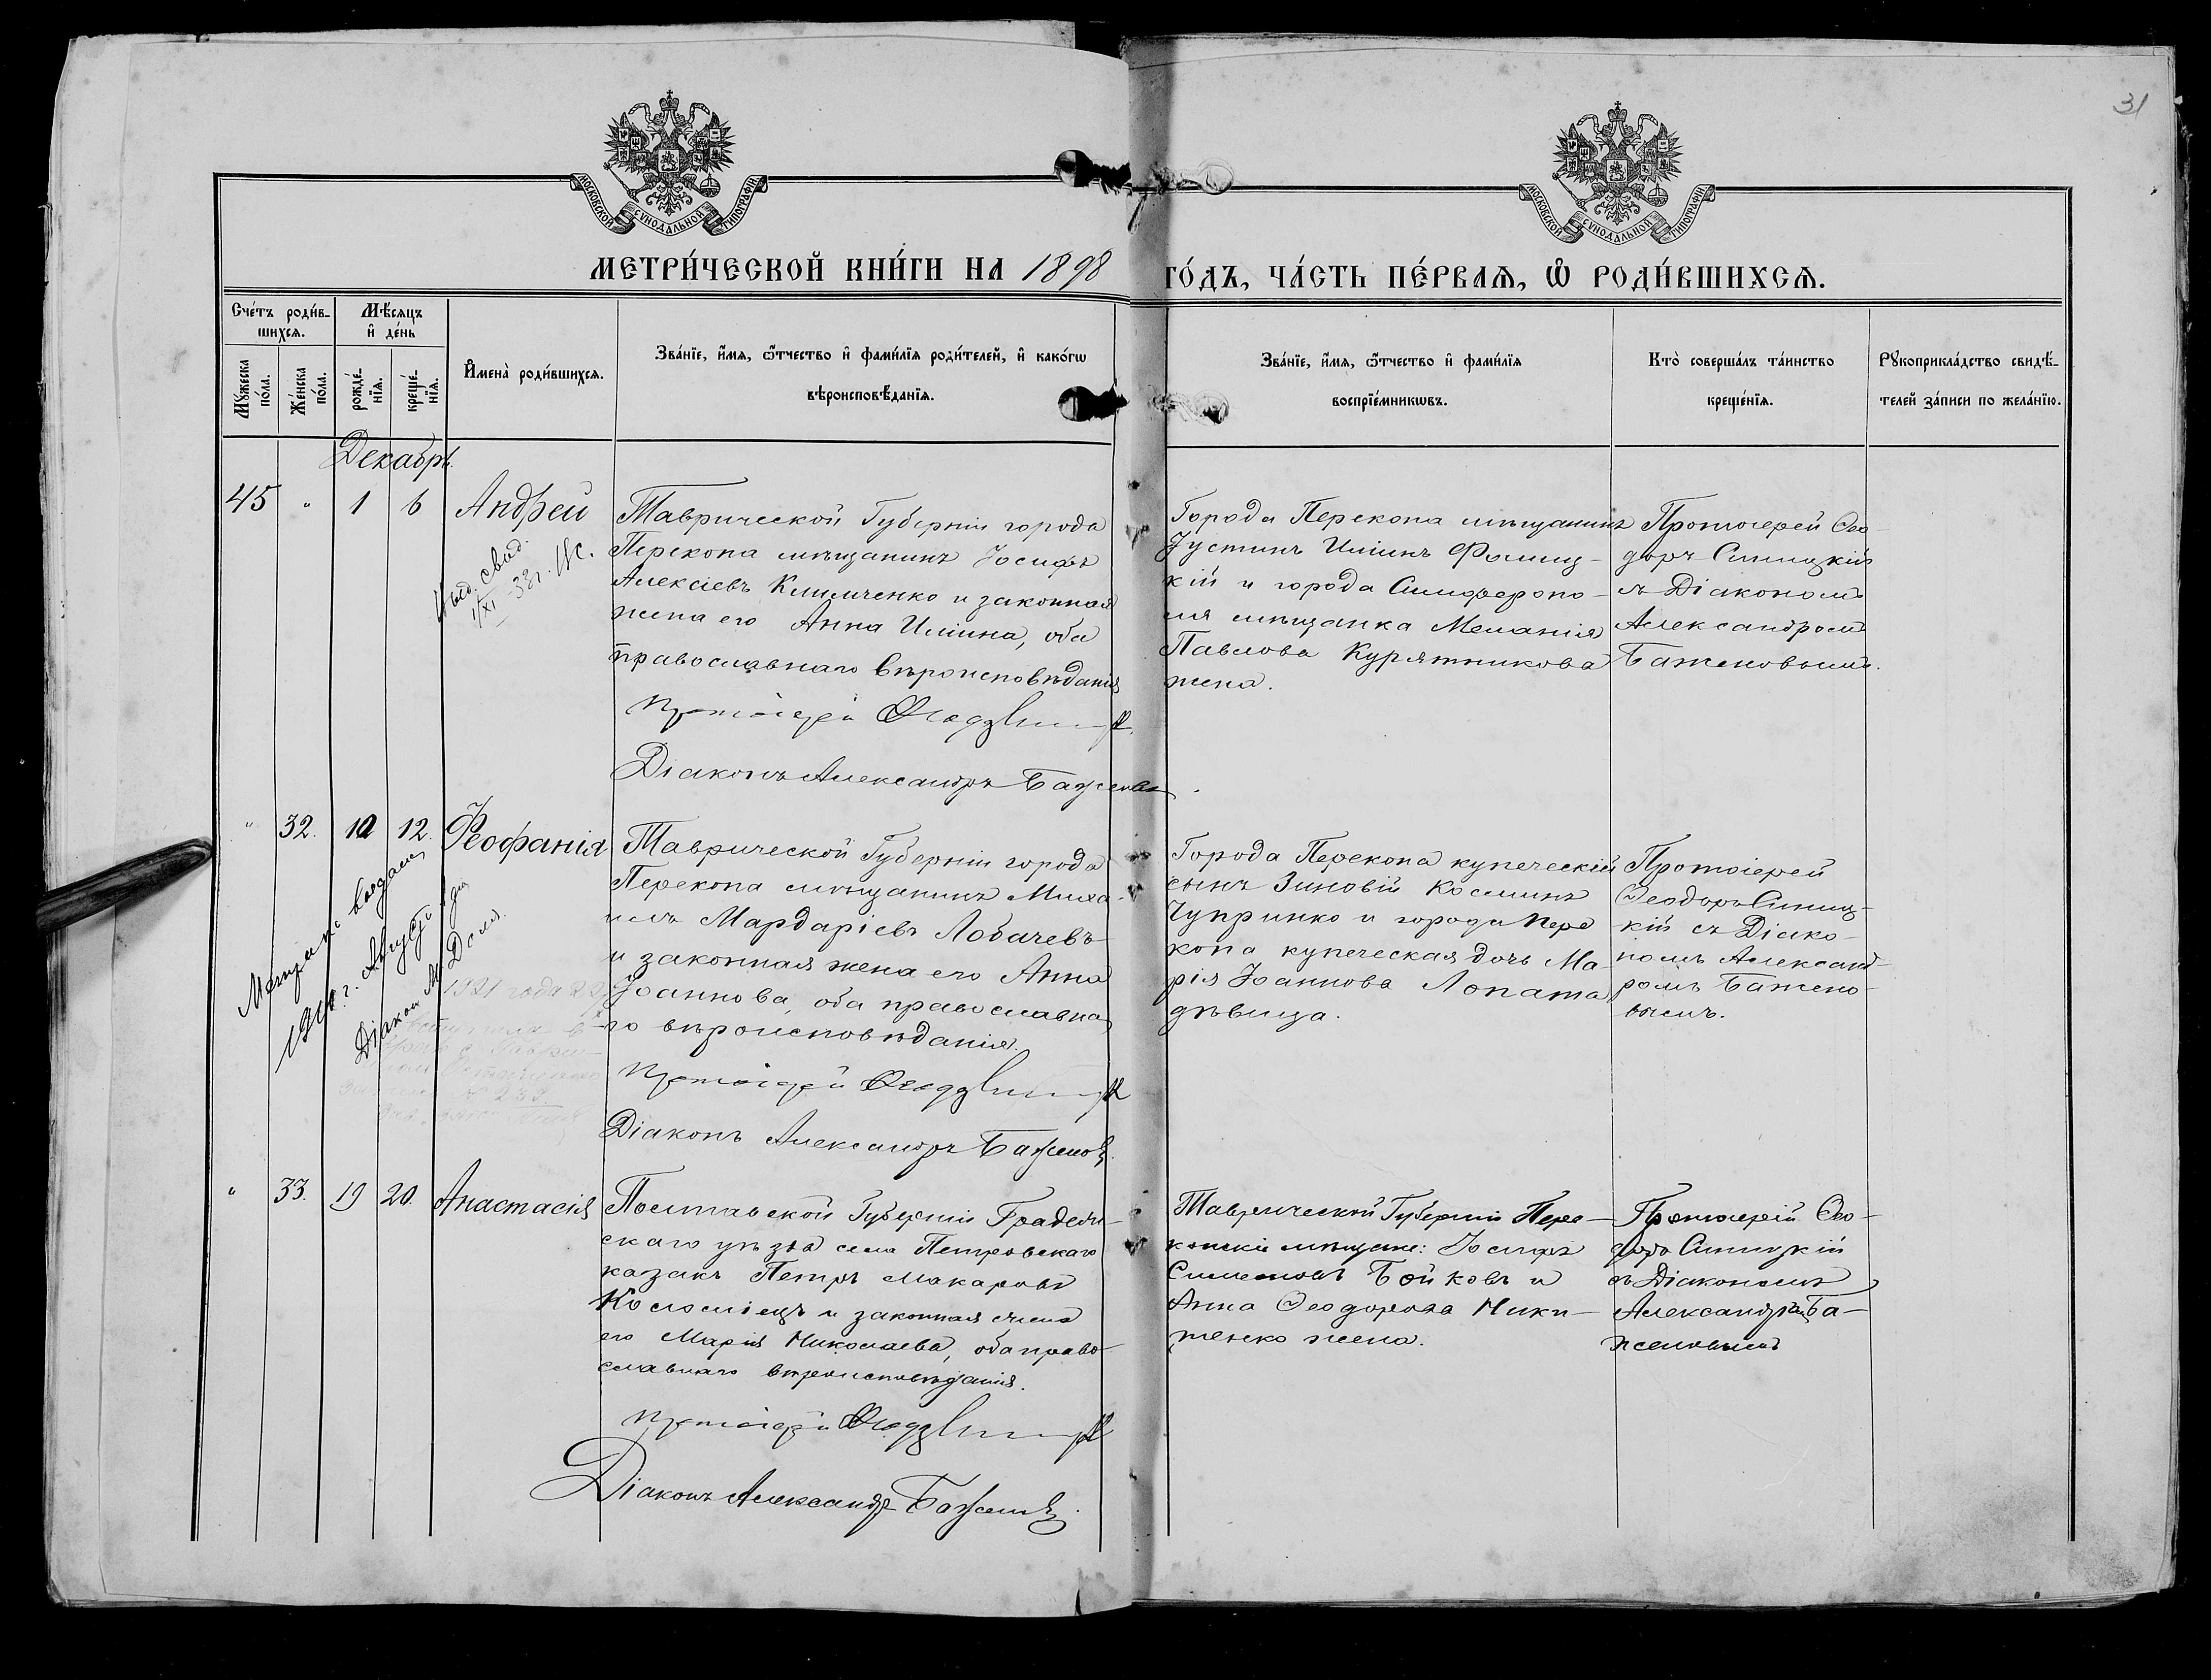 31
МОСКОВСКОЙ СѴНОДАЛЬНОЙ ТИПОГРАФІИ
МОСКОВСКОЙ СѴНОДАЛЬНОЙ ТИПОГРАФІИ
МЕТРИ́ЧЕСКОЙ КНИ́ГИ НА 1898 ГО́ДЪ, ЧА́СТЬ ПЕ́РВАѦ, Ѡ РОДИ́ВШИХСѦ.
Сче́тъ роди́в-
шихсѧ.
Мꙋ́жеска
по́ла.
Же́нска
по́ла.
Мѣ́сѧцъ
и҆ де́нь
рожде́-
нїѧ.
креще́-
нїѧ.
И҆мена̀ роди́вшихсѧ.
Зва́нїе, и҆́мѧ, ѻ҆́тчество и҆ фами́лїѧ роди́телей, и҆ како́гѡ
вѣроисповѣ́данїѧ.
Зва́нїе, и҆́мѧ, ѻ҆́тчество и҆ фами́лїѧ
воспрїе́мникѡвъ.
Кто̀ соверша́лъ та́инство
креще́нїѧ.
Рꙋкоприкла́дство свидѣ́-
телей за́писи по жела́нїю.
Декабрь.
45 " 1 6 Андрей
Выд. свид.
1/XI-33г.
Таврической Губерніи города
Перекопа мѣщанинъ Іосифъ
Алексіевъ Климченко и законная
жена его Анна Иліина, оба
православнаго вѣроисповѣданія
Протоіерей
Діаконъ Александръ Баженовъ
Города Перекопа мѣщанинъ
Іустинъ Иліинъ Фомиц-
кій и города Симферопо-
ля мѣщанка Меланія
Павлова Курятникова
жена.
Протоіерей Ѳео-
доръ Синицкій
съ Діакономъ
Александромъ
Баженовымъ.
" 32. 10 12. Феофанія
Метрика выдана
191 г. Августа дня
Діакон М. Доля.
1921 года 22
№ 233.
Таврической Губерніи города
Перекопа мѣщанинъ Миха-
илъ Мардаріевъ Лобачевъ
и законная жена его Анна
Іоаннова, оба православна-
го вѣроисповѣданія.
Протоіерей
Діаконъ Александръ Баженовъ.
Города Перекопа купеческій
сынъ Зиновій Косминъ
Чупринко и города Пере
копа купеческая дочь Ма-
рія Іоаннова Лопата
дѣвица.
Протоіерей
Ѳеодоръ Синиц-
кій съ Діако-
номъ Александ-
ромъ Бажено-
вымъ.
" 33. 19 20. Анастасія
Полтавской Губерніи Градеж-
скаго уѣзда села Петровскаго
казакъ Петръ Макаровъ
Коломіецъ и законная жена
его Марія Николаева, оба право-
славнаго вѣроисповѣданія.
Протоіерей
Діаконъ Александръ Баженовъ.
Таврической Губерніи Пере-
копскіе мѣщане: Іосифъ
Симеоновъ Бойковъ и
Анна Ѳеодорова Ники-
тенко жена.
Протоіерей Ѳео-
доръ Синицкій
съ Діакономъ
Александромъ Ба-
женовымъ